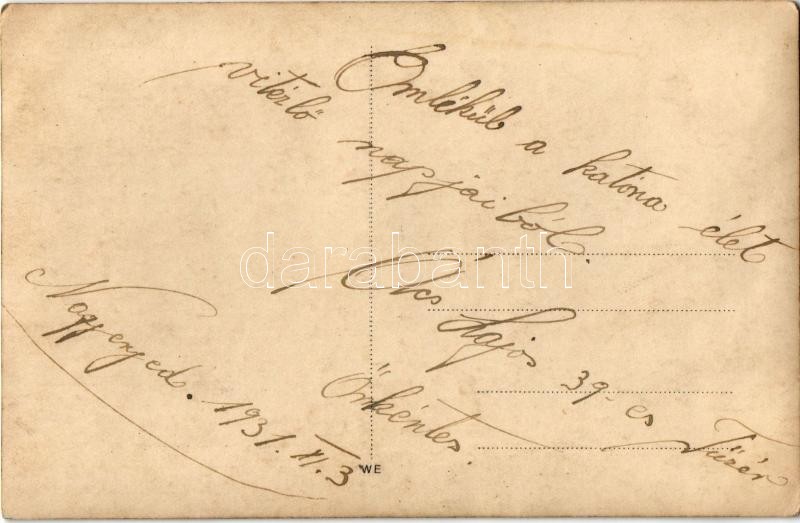 Emlékül a katona élet
vitézlő napjaiból.
Ács Lajos 39-es Tüzér
Önkéntes.
Nagyenyed. 1931. XI. 3
WE
darabanth